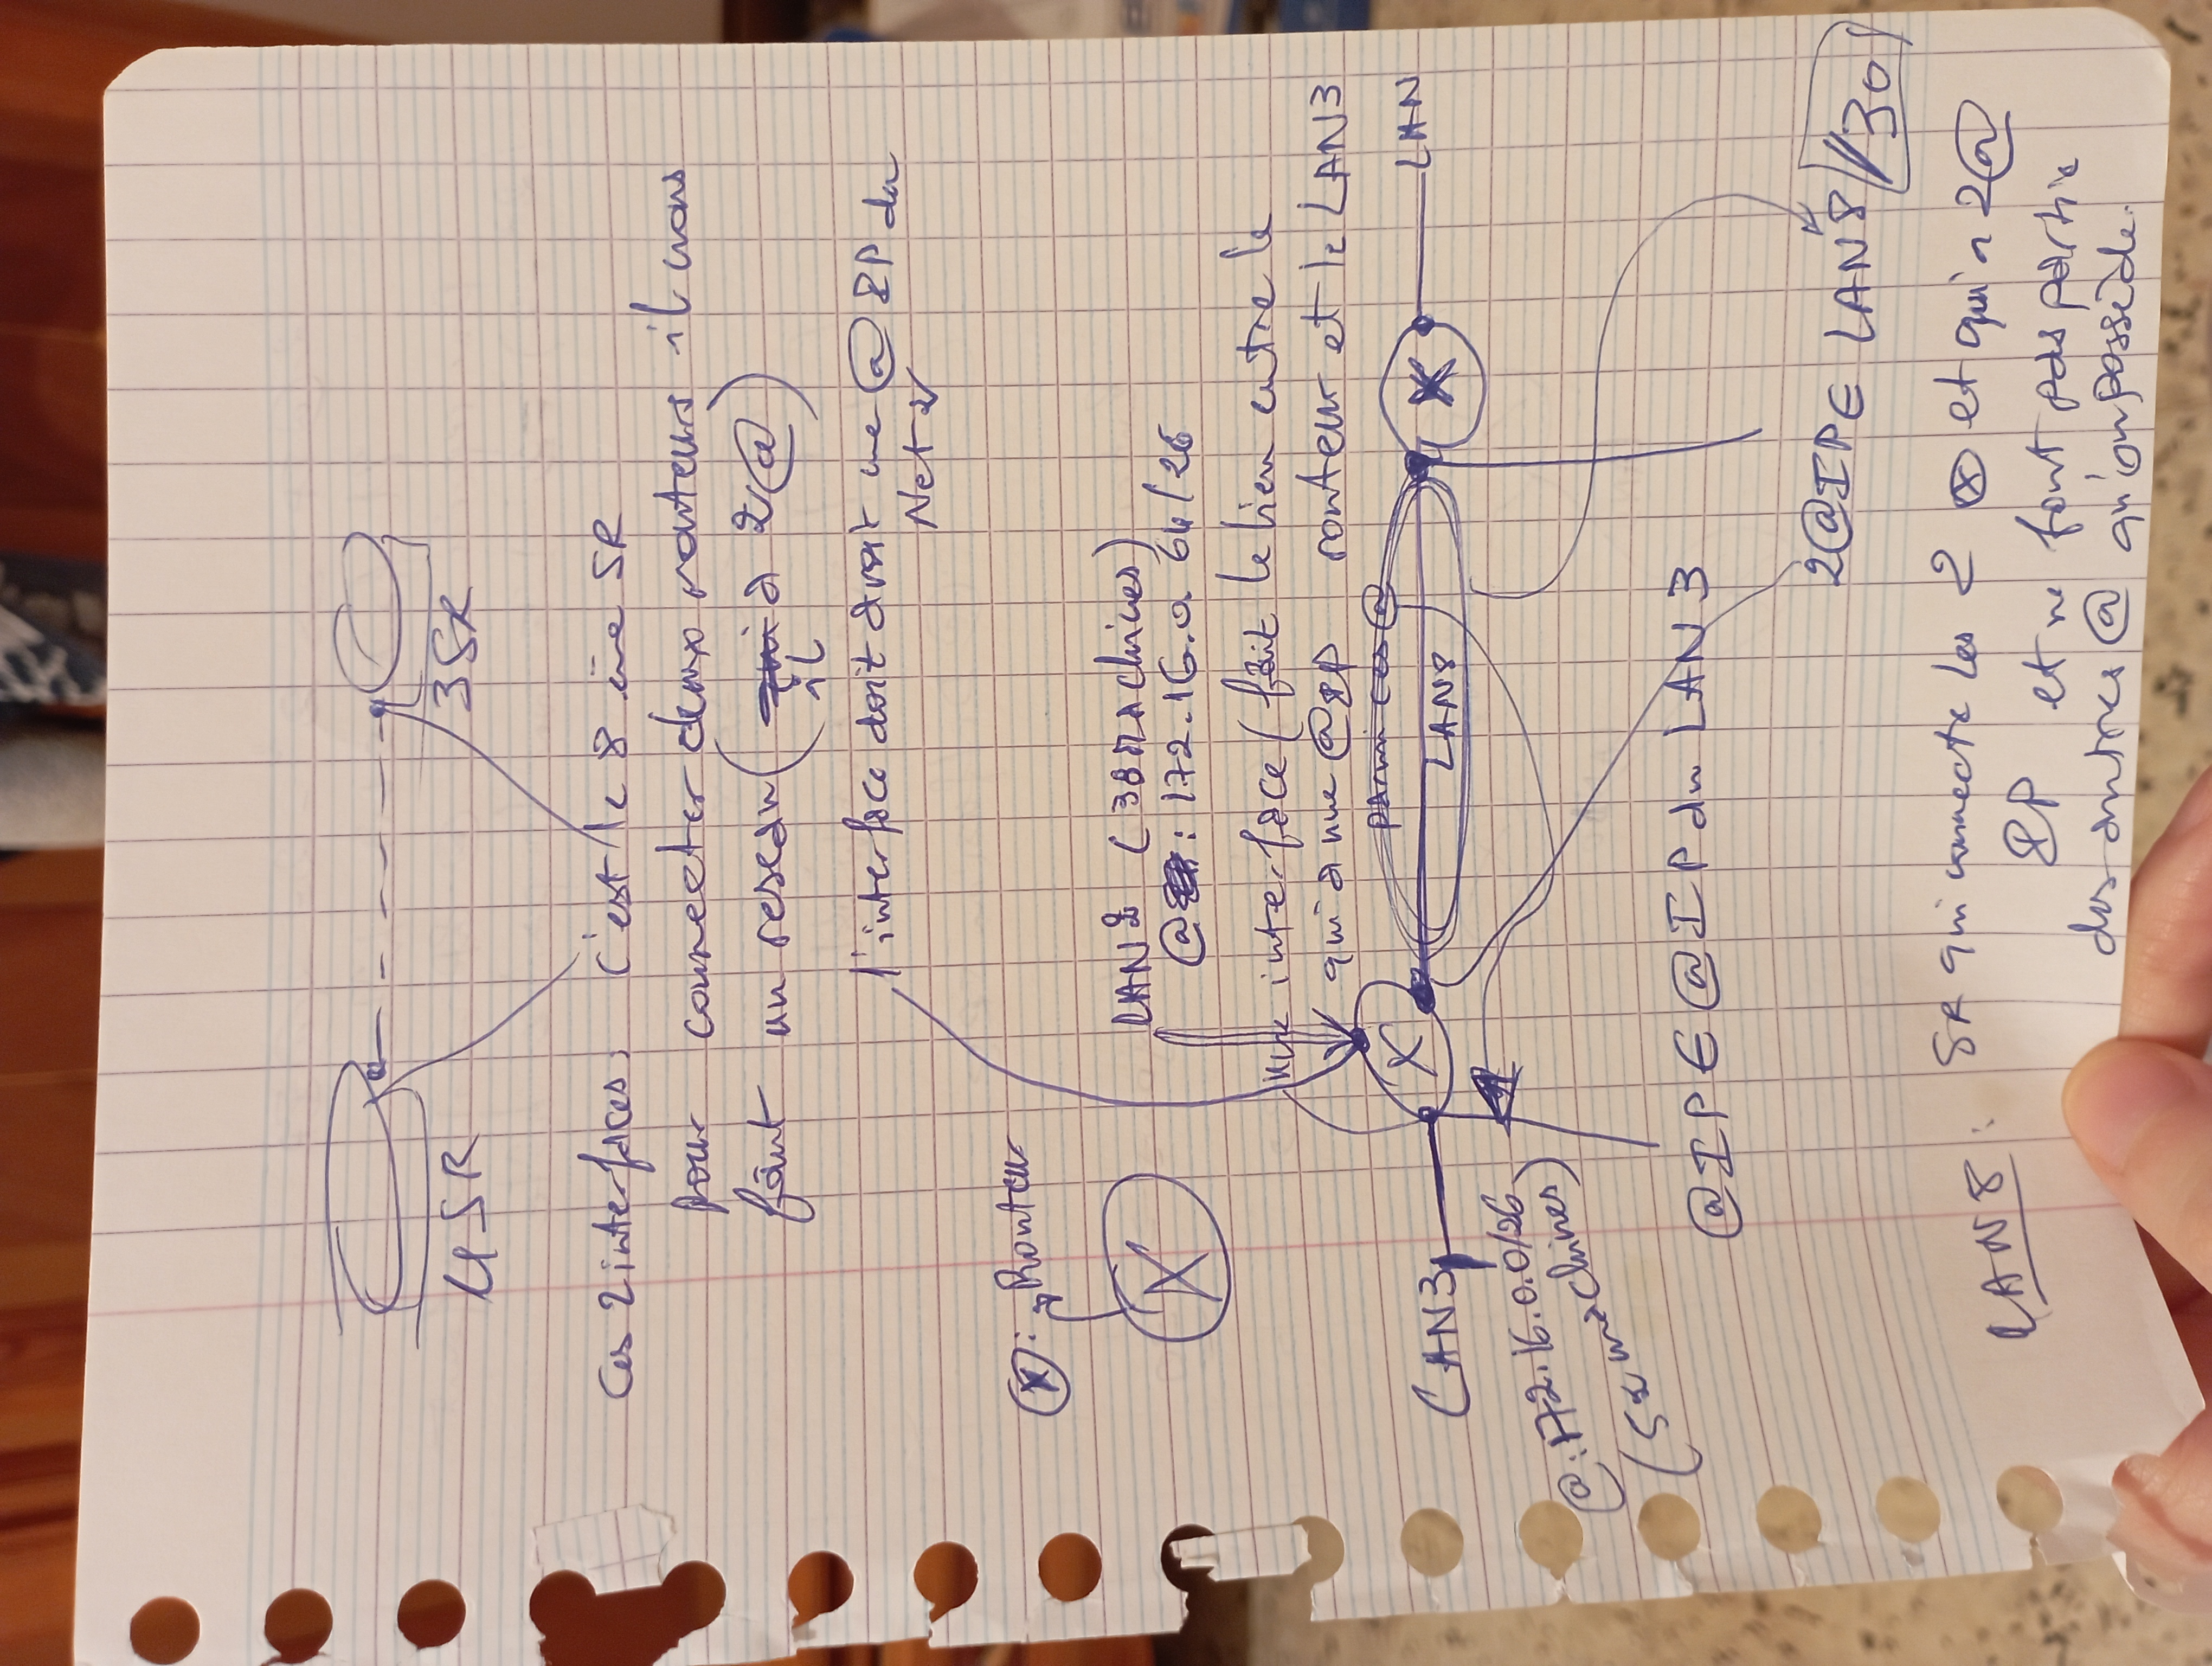 4SR
3SR
Ces 2 interfaces, c'est le 8 ème SR
pour connecter deux routeurs il nous
faut un reseau ( a 2 @ )
il
l'interface doit avoir une @ IP du
Net 2
X : Routeur
X
LAN2 (38 machines)
@ : 172.16.0.64/26
une interface (fait le lien entre le
qui a une @IP routeur et le LAN3
parmi ces @
LAN3 X LAN8 X LAN
@:172.16.0.0/26
(52 machines)
@IP ∈ @IP du LAN 3
2@IP ∈ LAN8 /30
LAN8 : SR qui connecte les 2 X et qui a 2@
IP et ne font pas partie
des autres @ qu'on possède.